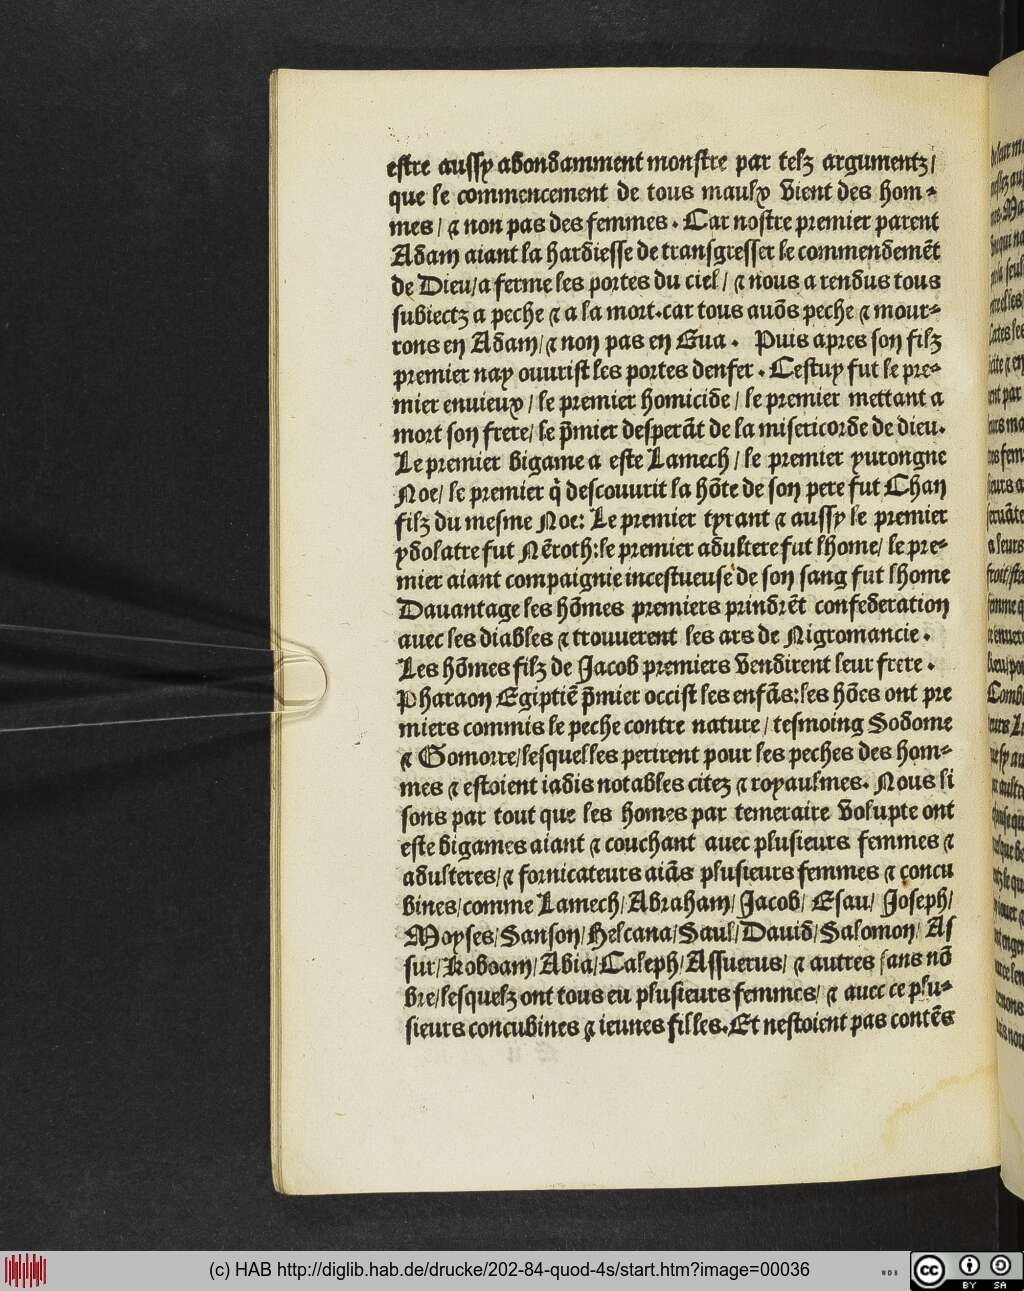 estre aussy abondamment monstre par telz argumentz/
que le commencement de tous maulx vient des hom-
mes/ & non pas des femmes. Car nostre premier parent
Adam aiant la hardiesse de transgresser le commendemēt
de Dieu/a ferme les portes du ciel/ & nous a rendus tous
subiectz a peche & a la mort.car tous auōs peche & mour-
rons en Adam/& non pas en Eua. Puis apres son filz
premier nay ouurist les portes denfer. Cestuy fut le pre-
mier enuieux/ le premier homicide/ le premier mettant a
mort son frere/ le p̄mier desperāt de la misericorde de dieu.
Le premier bigame a este Lamech/ le premier yurongne
Noe/ le premier q̇ descouurit la hōte de son pere fut Chan
filz du mesme Noe: Le premier tyrant & aussy le premier
ydolatre fut Nēroth:le premier adultere fut lhome/ le pre-
mier aiant compaignie incestueuse de son sang fut lhome
Dauantage les hōmes premiers prindrēt confederation
auec les diables & trouuerent les ars de Nigromancie.
Les hōmes filz de Jacob premiers vendirent leur frere.
Pharaon Egiptiē p̄mier occist les enfās:les hōes ont pre
miers commis le peche contre nature/ tesmoing Sodome
& Gomorre/lesquelles perirent pour les peches des hom-
mes & estoient iadis notables citez & royaulmes. Nous li
sons par tout que les homes par temeraire volupte ont
este bigames aiant & couchant auec plusieurs femmes &
adulteres/& fornicateurs aiās plusieurs femmes & concu
bines/comme Lamech/Abraham/Jacob/ Esau/ Joseph/
Moyses/Sanson/Helcana/Saul/Dauid/Salomon/ As
sur/Roboam/Abia/Caleph/Assuerus/ & autres sans nō
bre/lesquelz ont tous eu plusieurs femmes/ & auec ce plu-
sieurs concubines & ieunes filles.Et nestoient pas contēs
(c) HAB http://diglib.hab.de/drucke/202-84-quod-4s/start.htm?image=00036
cc BY SA